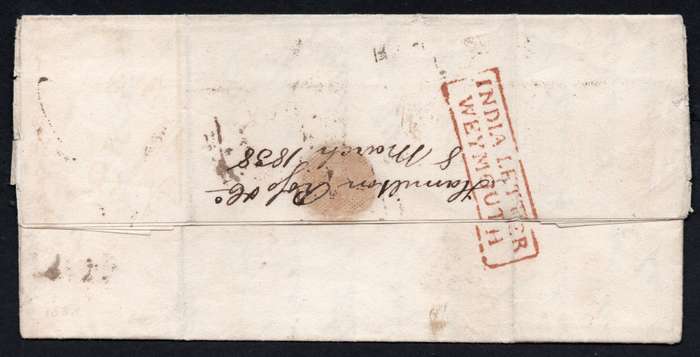 INDIA LETTER
WEYMOUTH
Hamilton Ross & Co
8 March 1838